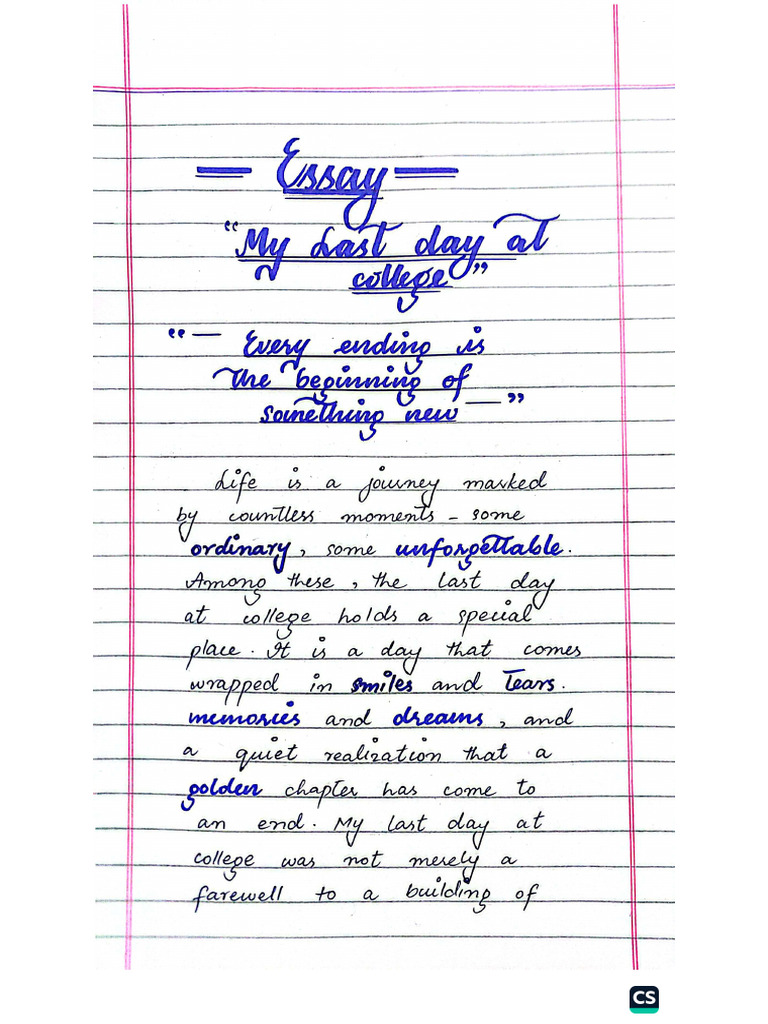 — Essay —
"My Last day at
college"
"— Every ending is
the beginning of
something new —"
Life is a journey marked
by countless moments - some
ordinary, some unforgettable.
Among these, the last day
at college holds a special
place. It is a day that comes
wrapped in smiles and Tears.
memories and dreams, and
a quiet realization that a
golden chapter has come to
an end. My last day at
college was not merely a
farewell to a building of
CS